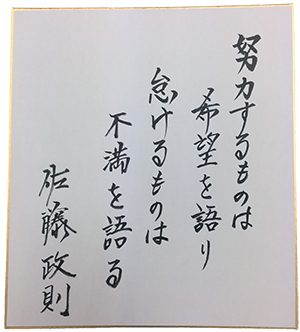 努力するものは
希望を語り
怠けるものは
不満を語る
佐藤政則